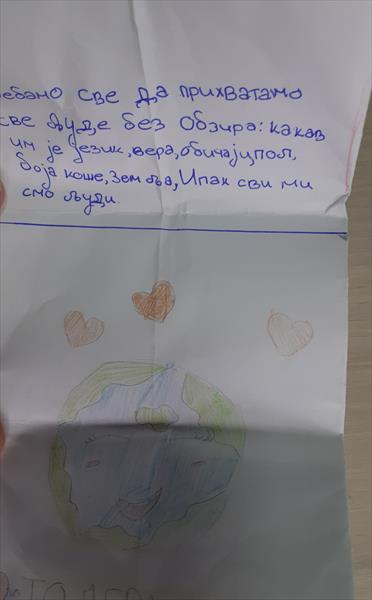 ебамо све да прихватамо
све људе без обзира: какав
им је језик, вера, обичај, пол,
боја коше, земља, Ипак сви ми
смо људи.